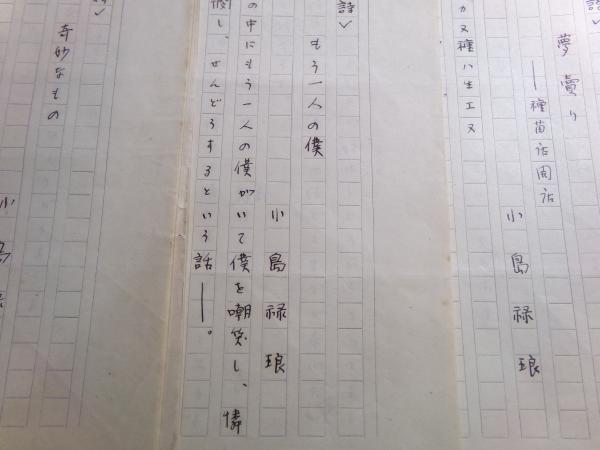 詩✓
夢賣り
小島禄琅
カヌ種ハ生エヌ
詩✓
もう一人の僕
小島禄琅
の中にもう一人の僕がいて僕を嘲笑し、憐
憫し、せんどうするという話――。
奇妙なもの
小島